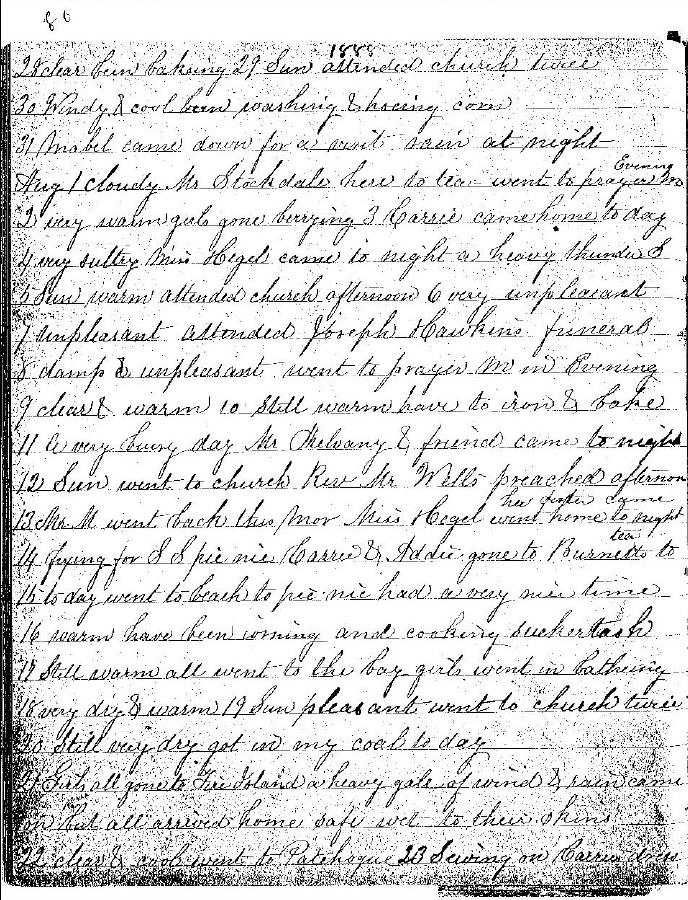 86
1888
28 clear been bakeing 29 Sun attended church twice
30 Windy & cool been washing & hoeing corn
31 Mabel came down for a visit rain at night
Aug 1 cloudy Mr Stockdale here to tea went to prayer M
Evening
2 very warm girls gone berrying 3 Carrie came home to day
4 very sultry Miss Hegel came to night a heavy thunder S
5 Sun warm attended church afternoon 6 very unpleasant
7 unpleasant attended Joseph Hawkins funeral
8 damp & unpleasant went to prayer M in Evening
9 clear & warm 10 Still warm have to iron & bake
11 A very busy day Mr & friend came to night
12 Sun went to church Rev Mr Wells preached afternoon
her sister came
13 Mr M went back this Mor Miss Hegel went home to night
tea
14 frying for S S pic nic Carrie & Addie gone to Burnetts to
15 to day went to beach to pic nic had a very nice time
16 warm have been ironing and cooking suckertash
17 Still warm all went to the bay girls went in batheing
18 very dry & warm 19 Sun pleasant went to church twice
20 Still very dry got in my coal to day
21 Girls all gone to Fire Island a heavy gale of wind & rain came
on but all arrived home safe wet to their skins
22 clear & cool went to Patchogue 23 Sewing on Carries dress